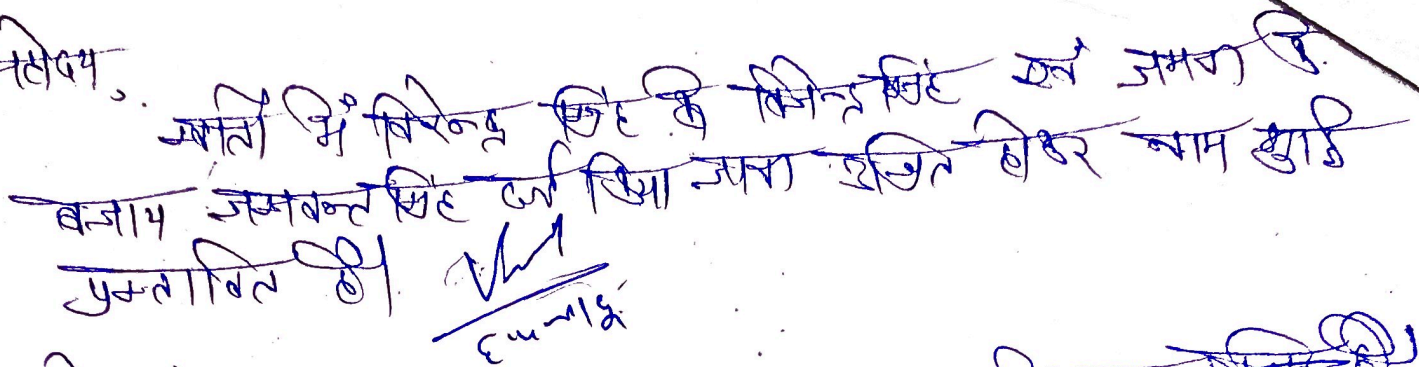 महोदय,
खाता में विरेन्द्र सिंह के विजेन्द्र सिंह एवं जसवन्त के
बजाय जसवन्त सिंह दर्ज किया जाना उचित होकर नाम शुद्धि
प्रस्तावित है।